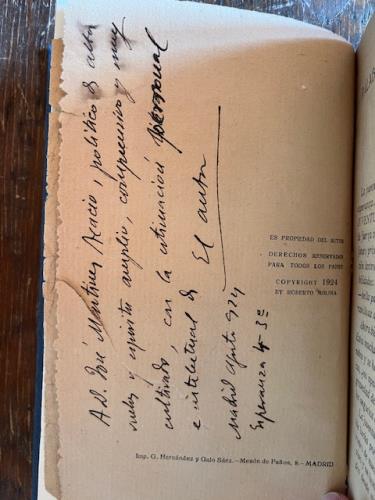 A D. José Martínez Acacio, político de altos
vuelos y espíritu amplio, comprensivo y muy
cultivado, con la estimación personal
e intelectual de
El autor
Madrid agosto 924
Esperanza 4-3º
ES PROPIEDAD DEL AUTOR
DERECHOS RESERVADOS
PARA TODOS LOS PAÍSES
COPYRIGHT 1924
BY ROBERTO MOLINA
Imp. G. Hernández y Galo Sáez.—Mesón de Paños, 8.—MADRID